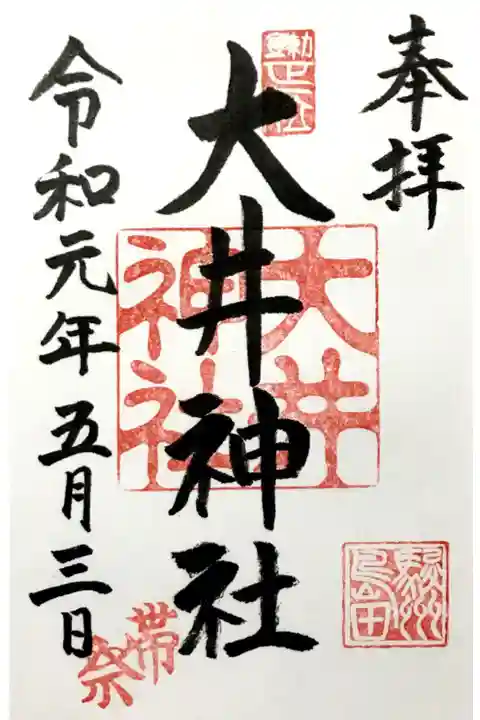 奉拝
大井神社
令和元年五月三日
大井神社
駿州島田
帯祭